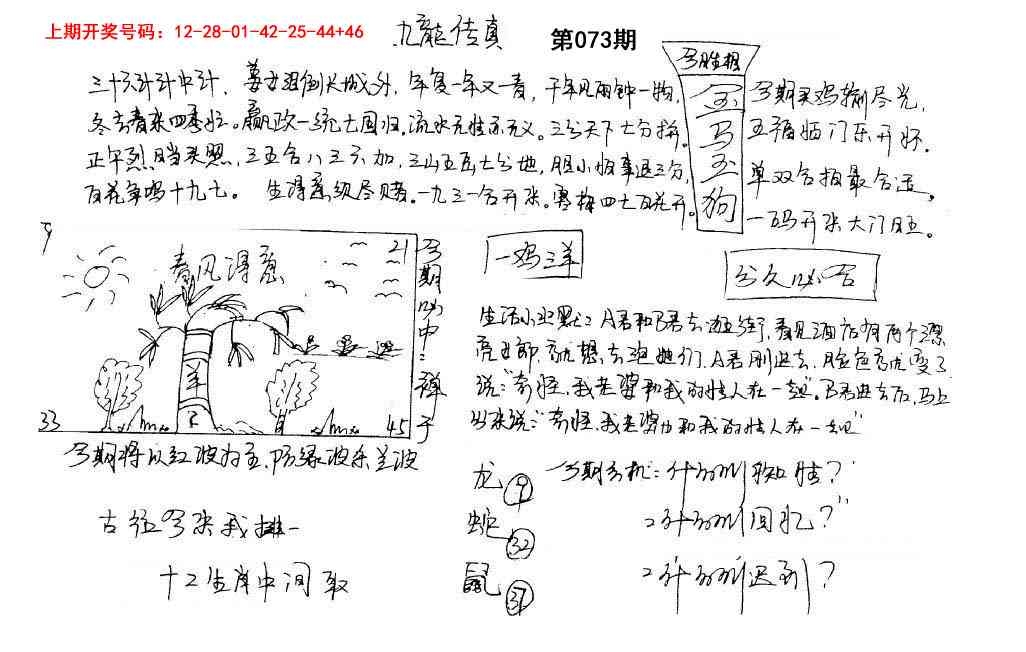 上期开奖号码：12-28-01-42-25-44+46
九龍传真
第073期
今期生肖
三十六计计中计，姜女泪倒长城外，年复一年又一春，千年见雨钟一物，
冬去春来四季忙。嬴政一统七国归，流水无情亦无义。三分天下七分拼，
正午烈日当头照，三五合八三六加，三山五岳七分地，胆小怕事退三分，
百花争鸣十九七。生得意须尽欢。一九三一合开来。寒梅四七百花开。
金
马
玉
狗
今期买鸡输尽光，
五福临门乐开怀。
单双合拍最合适，
一码开来大门旺。
9
21
春风得意
羊
33
45
今期必中：禅子
一鸡三羊
分久必合
生活小幽默：A君和B君去逛街，看见酒店有两个漂
亮女郎，就想去泡她们，A君刚进去，脸色就变了
说："奇怪，我老婆和我的情人在一起"。B君进去后，马上
出来说："奇怪，我老婆也和我的情人在一起"
今期将以红波为主，防绿波杀兰波
龙 9
蛇 32
鼠 37
今期分机：什么叫激情？
什么叫回忆？
什么叫迟到？
古往今来我排一
十二生肖中间取